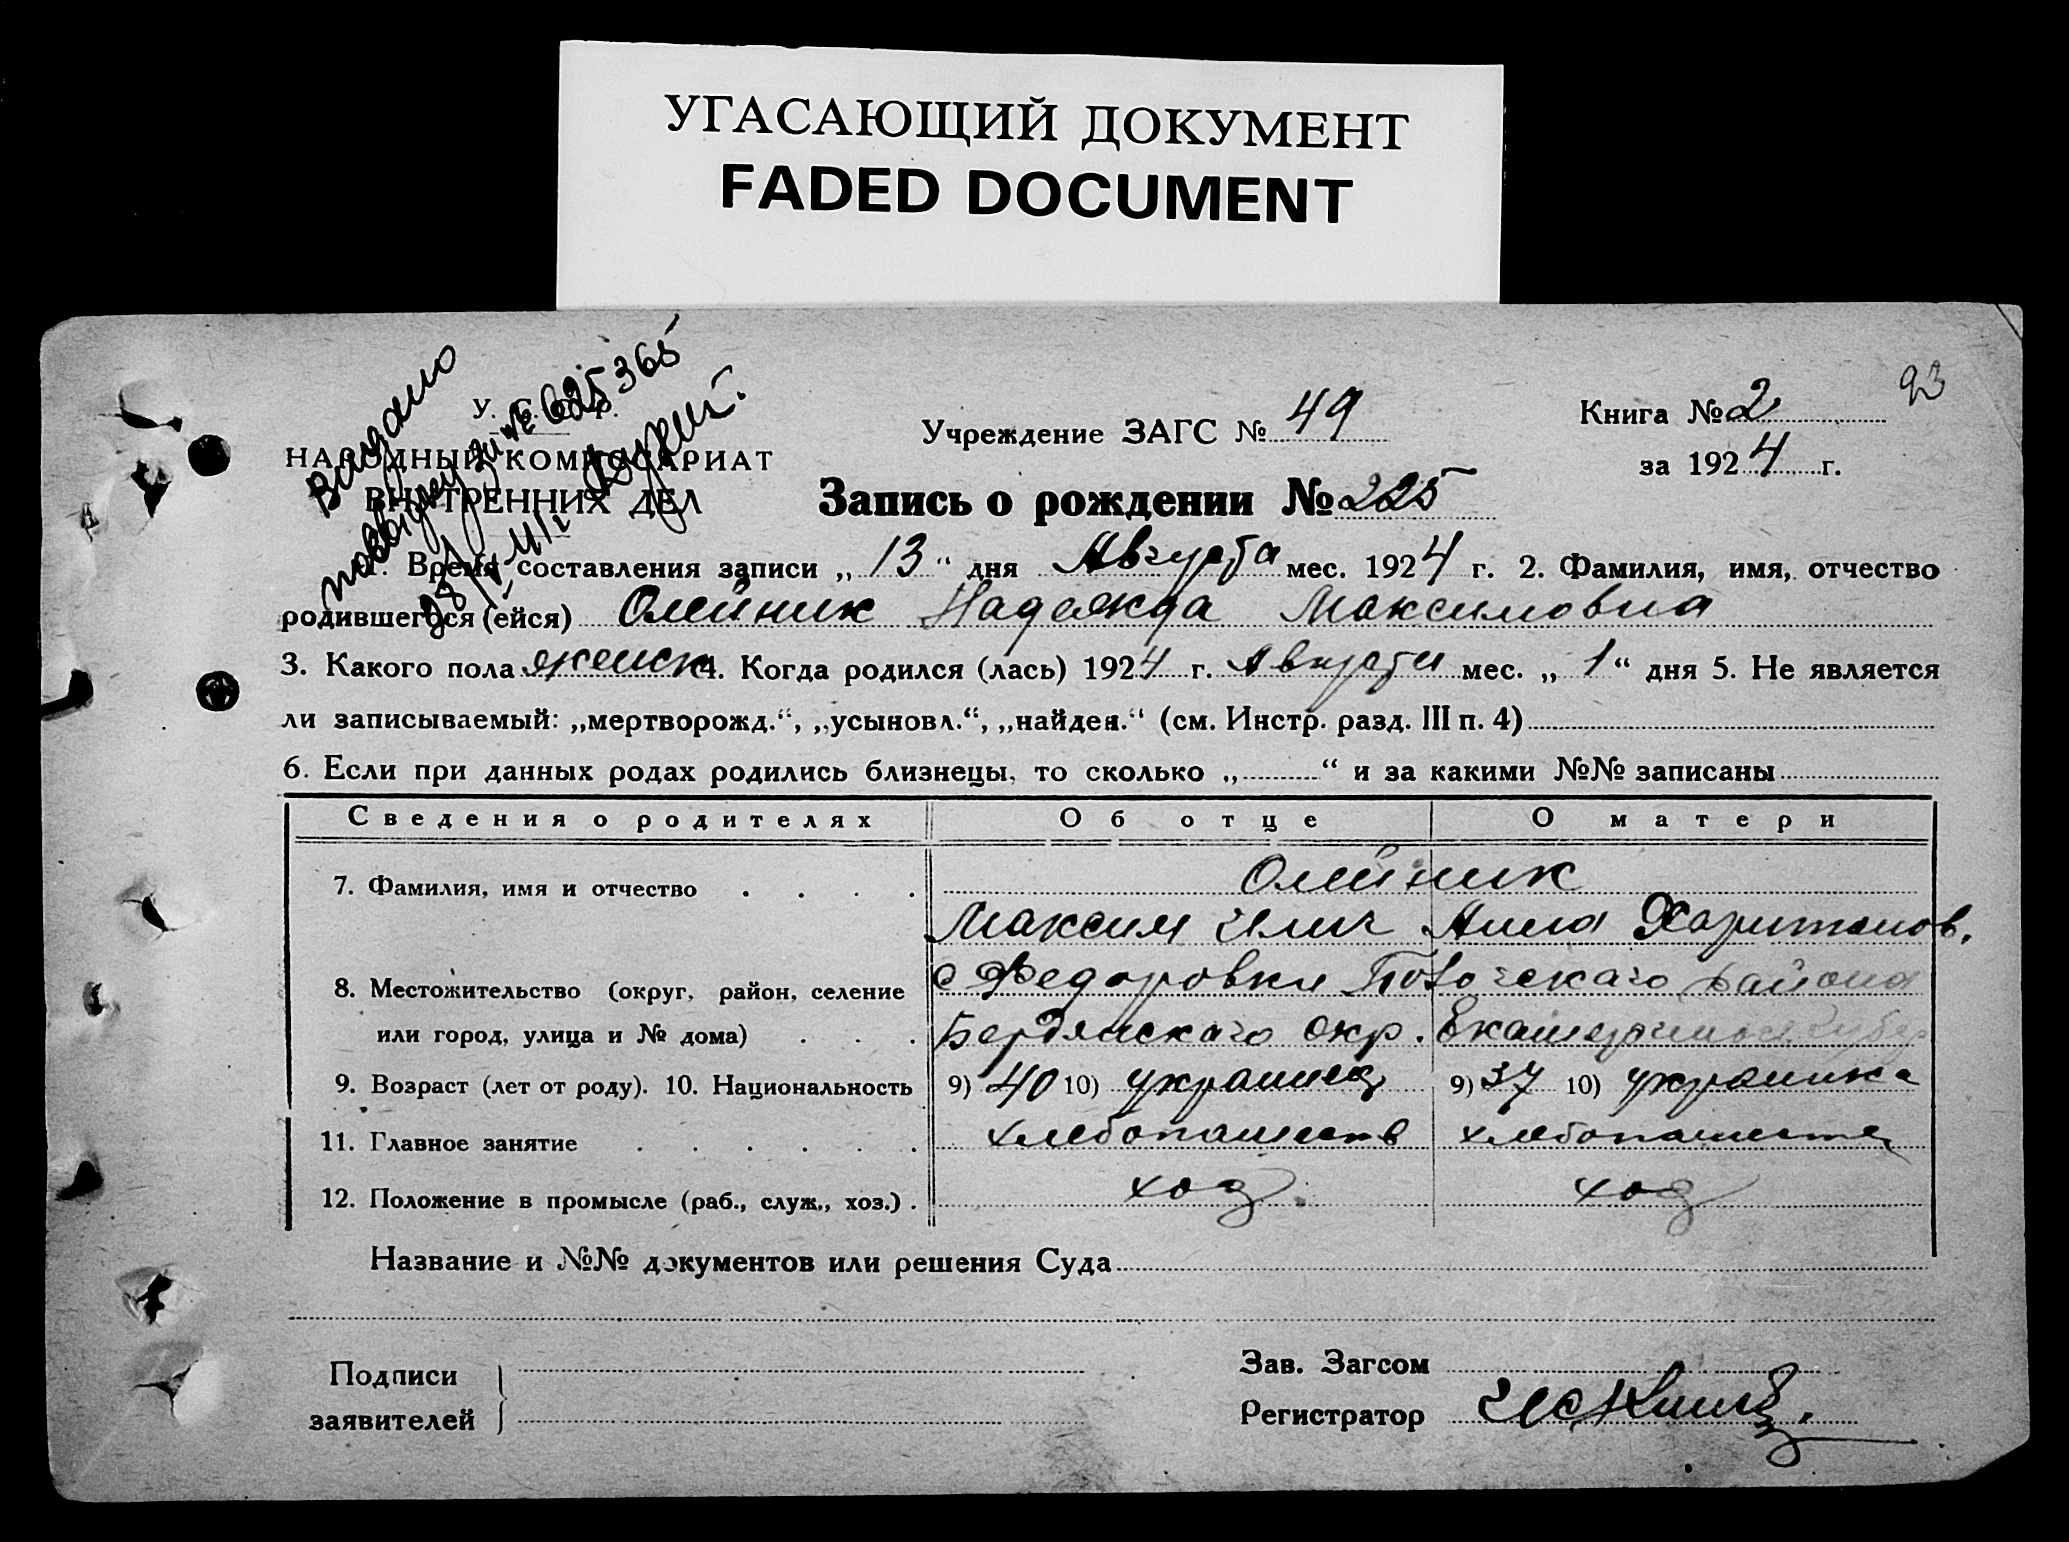 УГАСАЮЩИЙ ДОКУМЕНТ
FADED DOCUMENT
93
Выдано
повторну за № 625365
28/V-41 г.
У. С. С. Р.
НАРОДНЫЙ КОМИССАРИАТ
ВНУТРЕННИХ ДЕЛ
Учреждение ЗАГС № 49
Книга № 2
за 1924 г.
Запись о рождении № 225
1. Время составления записи „13“ дня Августа мес. 1924 г. 2. Фамилия, имя, отчество
родившегося (ейся) Олейник Надежда Максимовна
3. Какого пола женск 4. Когда родился (лась) 1924 г. Августа мес. „1“ дня 5. Не является
ли записываемый: „мертворожд.“, „усыновл.“, „найден.“ (см. Инстр. разд. III п. 4)
6. Если при данных родах родились близнецы, то сколько „ “ и за какими №№ записаны
Сведения о родителях Об отце О матери
7. Фамилия, имя и отчество Олейник
Максим Илич Анна Харитонов.
8. Местожительство (округ, район, селение с Федоровки района
или город, улица и № дома) Бердянскаго окр.
9. Возраст (лет от роду). 10. Национальность 9) 40 10) украинец 9) 37 10) украинка
11. Главное занятие хлебопашеств хлебопашеств
12. Положение в промысле (раб., служ., хоз.) хоз. хоз
Название и №№ документов или решения Суда
Подписи
заявителей
Зав. Загсом
Регистратор